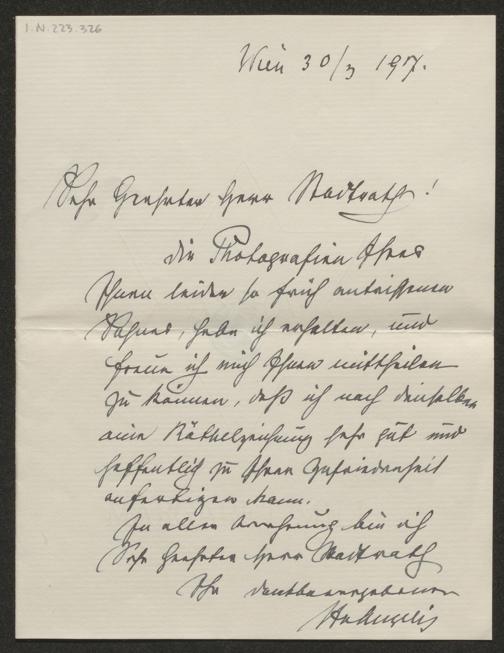 I.N. 223.326
Wien 30/3 1917.
Sehr Geehrter Herr Stadtrath!
die Photografien Ihres
Ihnen leider so früh entrissenen
Sohnes, habe ich erhalten, und
freue ich mich Ihnen mittheilen
zu können, daß ich nach denselben
eine Röthelzeichnung sehr gut und
hoffentlich zu Ihrer Zufriedenheit
anfertigen kann.
In aller Verehrung bin ich
Sehr geehrter Herr Stadtrath
Ihr dankbar ergebener
HvAngeli